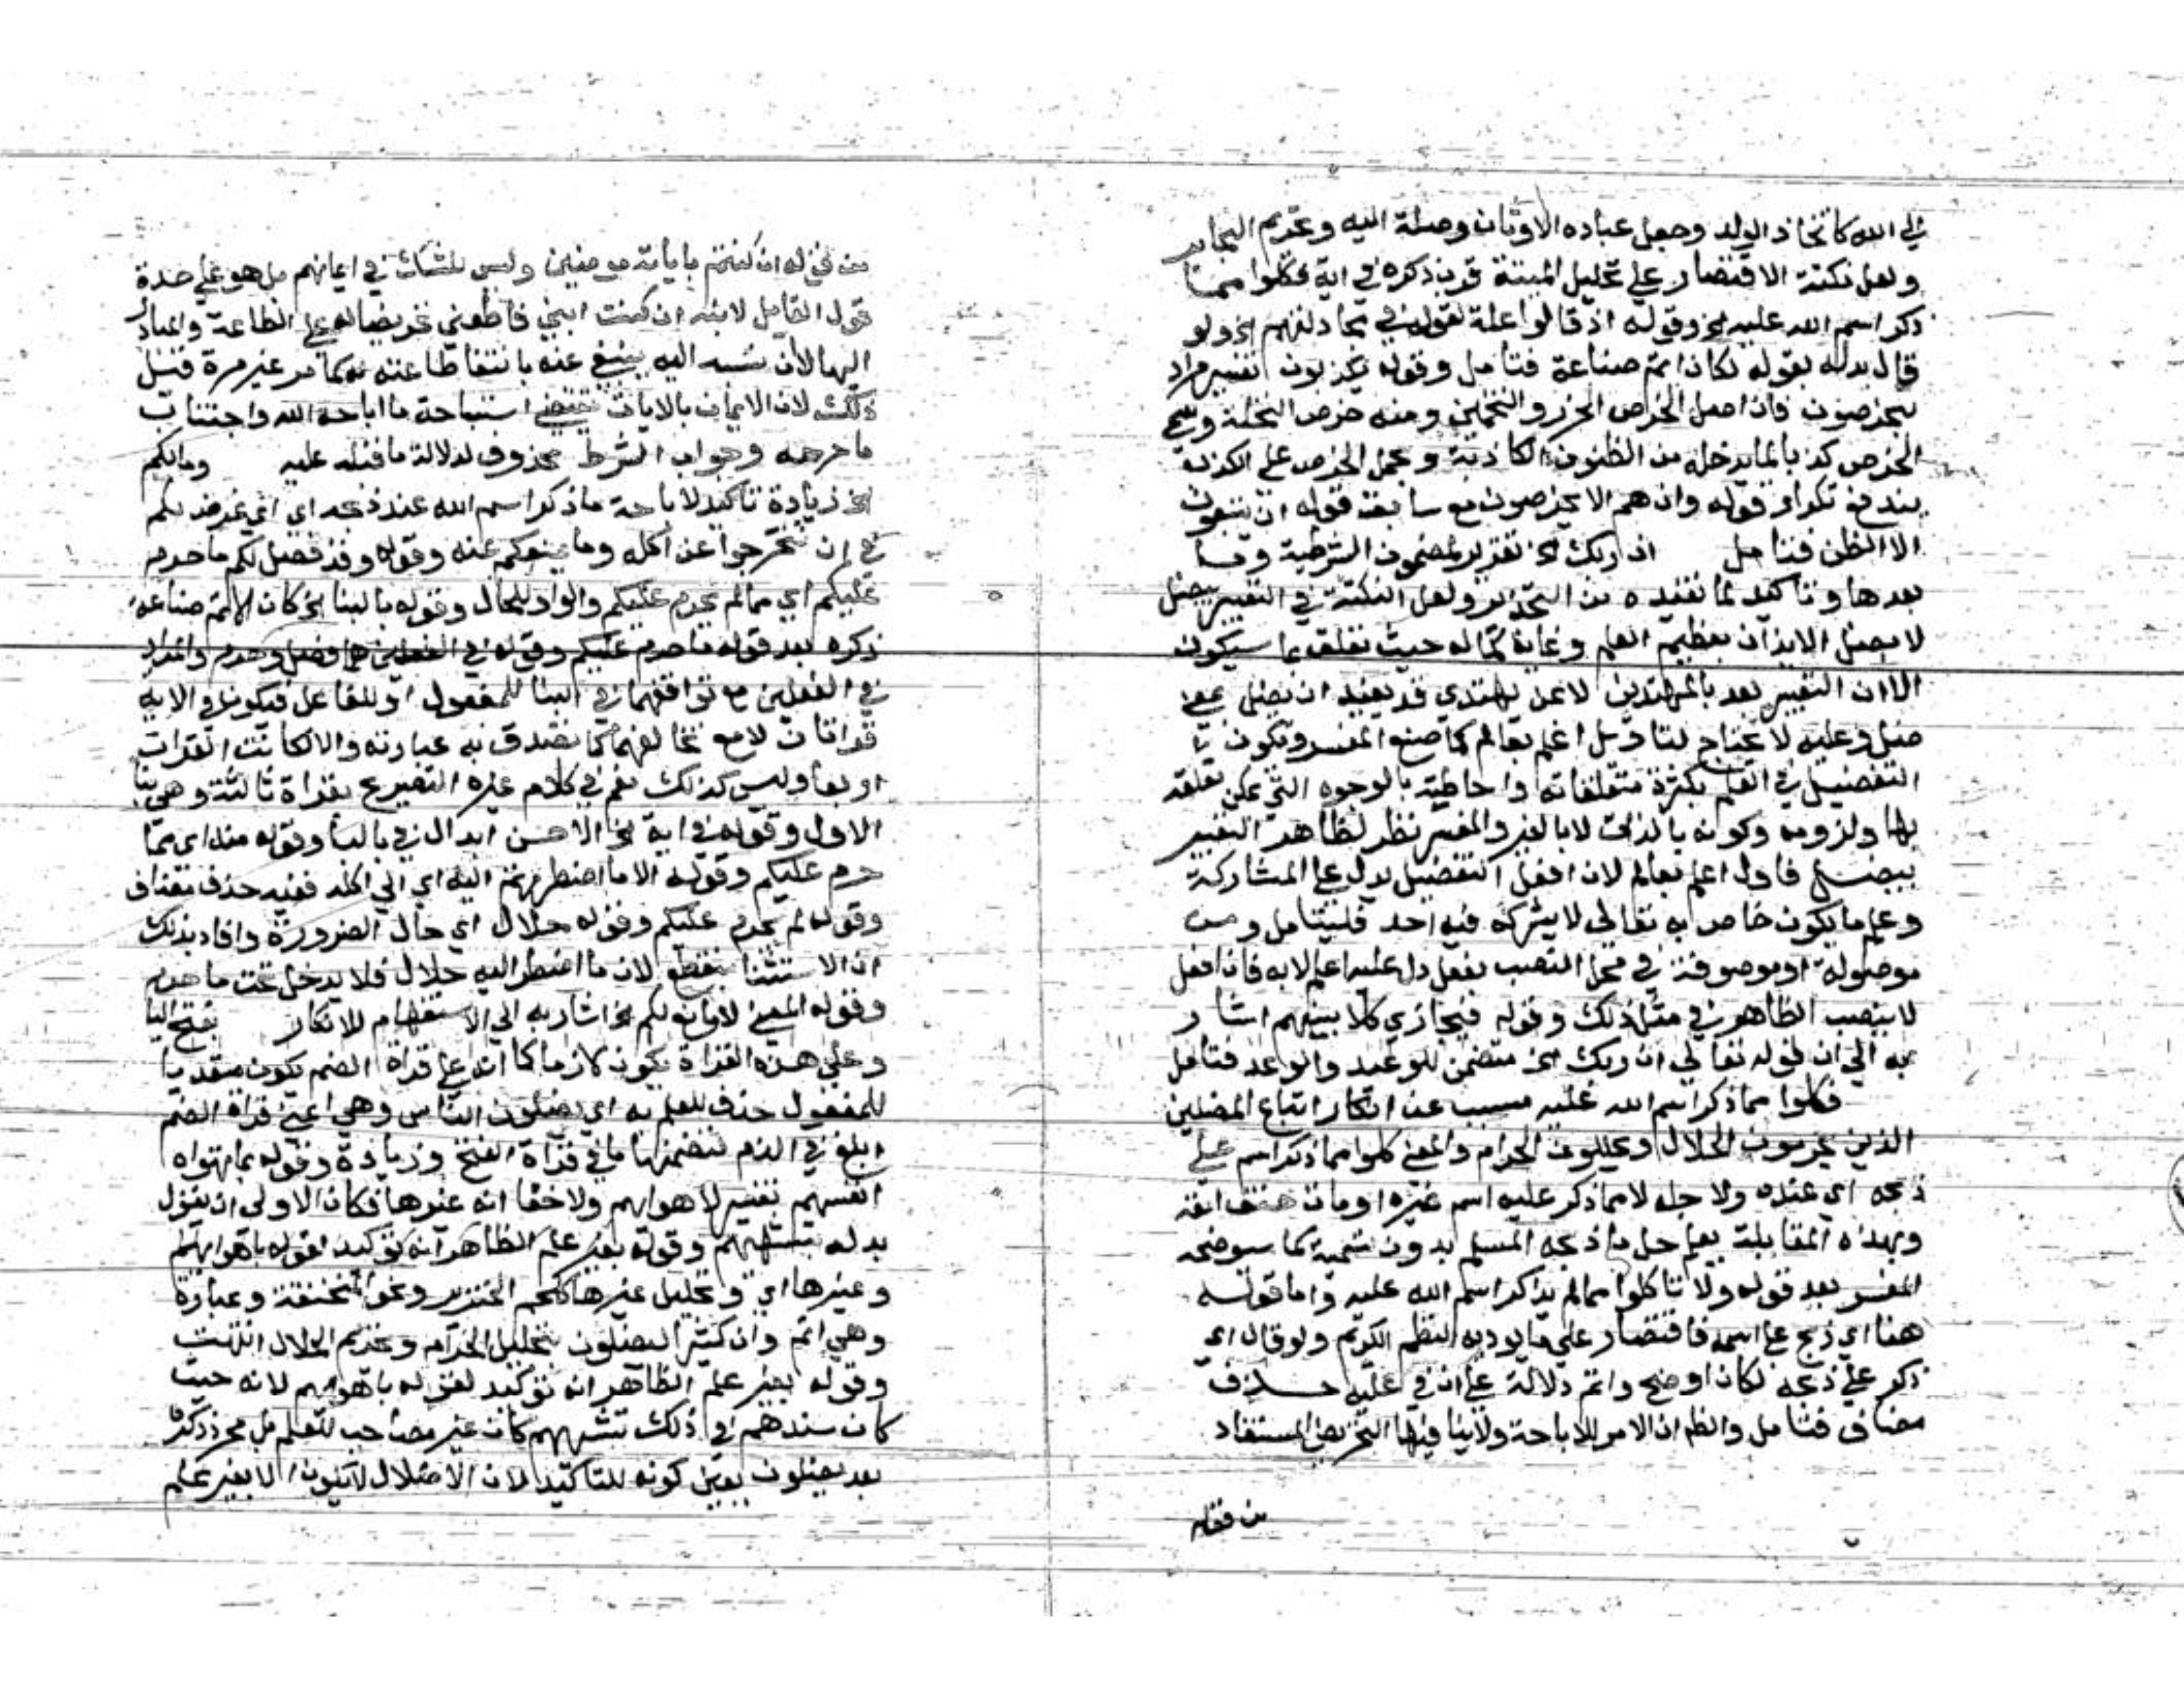 الى الله كاتخاذ الولد وجعل عباده الاوثان وصلة اليه وتحريم البحاير
ولعل نكتة الاقتصار على تحليل الميتة قرب ذكره في اية فكلوا مما
ذكر اسم الله عليه الخ وقوله اذ قالوا علة لقوله في مجادلتهم الخ ولو
قال بدله بقوله لكان اتم صناعة فتامل وقوله يكذبون تفسير مراد
ليخرصون فان اصل الخرص الحزر والتخمين ومنه خرص النخلة وسمى
الخرص كذبا لما يدخله من الظنون الكاذبة وبحمل الخرص على الكذب
يندفع تكرار قوله وان هم الا يخرصون مع سابقه قوله ان يتبعون
الا الظن فتامل ان ربك الخ تقرير لمضمون الشرطية وما
بعدها وتاكيد لما تفيده من التحذير ولعل النكتة في التعبير بيضل
لا بضل الايذان بعظيم العلم وغاية كماله حيث تعلق بما سيكون
الا ان التعبير بعد بالمهتدين لا بمن يهتدي قد يفيد ان يضل بمعنى
ضل وعليه لا يحتاج لتاويل اعلم بعالم كما صنع المفسر ويكون
التفضيل في العلم بكثرة متعلقاته واحاطته بالوجوه التي يمكن تعلقه
بها ولزومه وكونه بالذات لا بالغير والمفسر نظر لظاهر التعبير
بيضل فاول اعلم بعالم لان افعل التفضيل يدل على المشاركة
وعلم ما يكون خاص به تعالى لا يشركه فيه احد فليتامل ومن
موصولة او موصوفة في محل النصب بفعل دل عليه اعلم لا به فان افعل
لا ينصب الظاهر في مثل ذلك وقوله فيجازي كلا منهم اشار
به الى ان قوله تعالى ان ربك الخ متضمن للوعيد والوعد فتامل
فكلوا مما ذكر اسم الله عليه مسبب عن انكار اتباع المضلين
الذين يحرمون الحلال ويحللون الحرام والمعنى كلوا مما ذكر اسم على
ذبحه اى عنده ولاجله لا مما ذكر عليه اسم غيره او مات حتف انفه
وبهذه المقابلة يعلم حل ما ذبحه المسلم بدون تسمية كما سيوضحه
المفسر بعد قوله ولا تاكلوا مما لم يذكر اسم الله عليه واما قوله
هنا اى ذبح على اسمه فاقتصار على ما يوديه النظم الكريم ولو قال اى
ذكر على ذبحه لكان اوضح واتم دلالة على ان في عليه حذف
مضاف فتامل والظ ان الامر للاباحة ولا ينافيها التحريض المستفاد
من قوله
من قوله ان كنتم باياته مومنين وليس للشك في ايمانهم بل هو على حدة
قول القايل لابنه ان كنت ابني فاطعني تحريضا له على الطاعة
ذلك لان الايمان بالايات يقتضي استباحة ما اباحه الله واجتناب
ما حرمه وجواب الشرط محذوف لدلالة ما قبله عليه ومالكم
الخ زيادة تاكيد لاباحة ما ذكر اسم الله عند ذبحه اى اي غرض لكم
في ان تتحرجوا عن اكله وما يمنعكم عنه وقوله وقد فصل لكم ما حرم
عليكم اي مما لم يحرم عليكم والواو للحال وقوله بالبنا الخ كان الاتم صناعة
ذكره بعد قوله ما حرم عليكم وقوله في الفعلين هما فصل وحرم والمراد
في الفعلين مع توافقهما في البنا للمفعول او للفاعل فيكون في الاية
قراتان لا مع تخالفهما كما تصدق به عبارته والا لكانت القرات
اربعا وليس كذلك نعم في كلام غيره التصريح بقراة ثالثة وهي بنا
الاول وقوله في اية الخ الاحسن ابدال في بالبا وقوله منه اى مما
حرم عليكم وقوله الا ما اضطررتم اليه اى الى اكله ففيه حذف مضاف
وقوله لم يحرم عليكم وقوله حلال اى حال الضرورة وافاد بذلك
ان الاستثنا منقطع لان ما اضطر اليه حلال فلا يدخل تحت ما حرم
وقوله المعنى لا مانع لكم الخ اشار به الى الاستفهام للانكار بفتح اليا
وعلى هذه القراة يكون لازما كما انه على قراة الضم يكون متعديا
للمفعول حذف للعلم به اى يضلون الناس وهي اعني قراة الضم
ابلغ في الذم لتضمنها ما في قراة الفتح وزيادة وقوله بما تهواه
انفسهم تفسير لاهوايهم ولا خفا انه غيرها فكان الاولى ان يقول
بدله بتشهيهم وقوله بغير علم الظاهر انه توكيد لقوله باهوايهم
وغيرها اى وتحليل غيرها كلحم الخنزير ونحو المنخنقة وعبارة
وهي اتم وان كثيرا ليضلون بتحليل الحرام وتحريم الحلال انتهت
وقوله بغير علم الظاهر انه توكيد لقوله باهوايهم لانه حيث
كان سندهم في ذلك تشهيهم كان غير مصاحب للعلم بل مجرد ذكره
بعد يضلون يعين كونه للتاكيد لان الاضلال لا يكون الا بغير علم